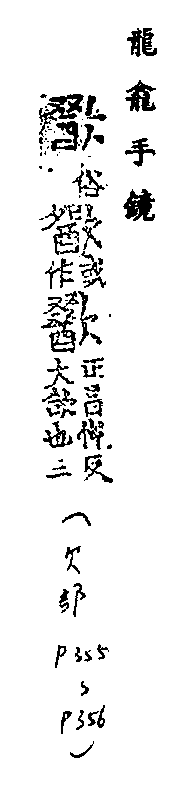 龍龕手鏡
俗或作正昌悅反大歠也三
（欠部 P355~P356）